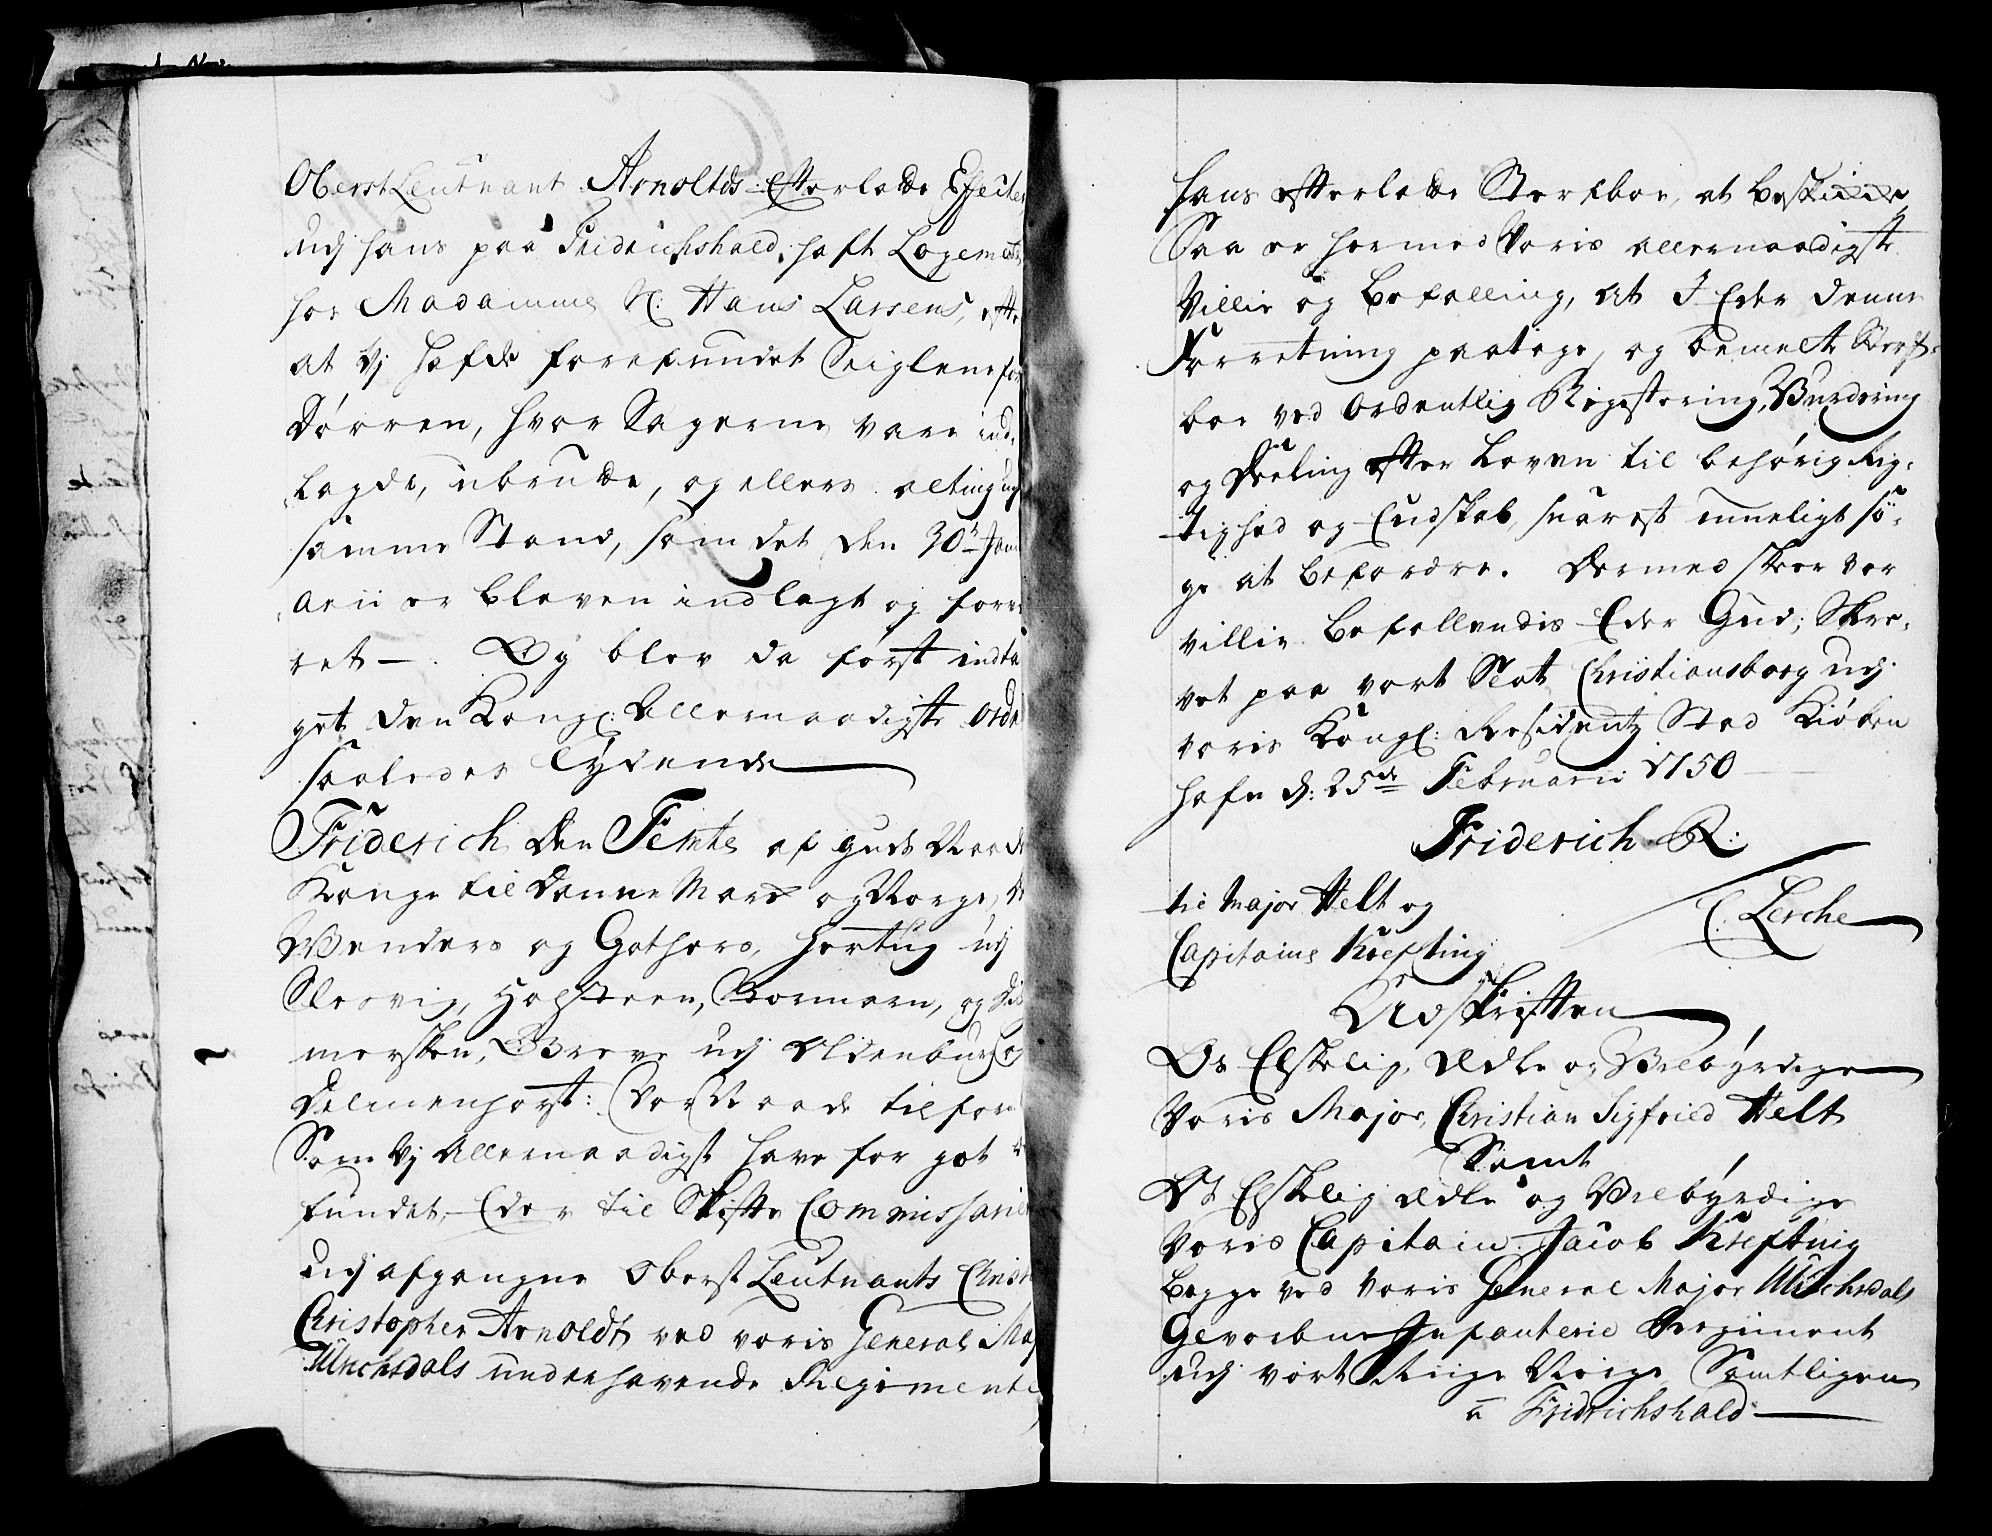 OberstLeutnant Arnoltds efterladte Effecter
udj hans paa Fridrichshald hafte Logemente
hos Madamme Sl: Hans Larsens, efter
at Vj hafde forefundet Seiglene for
Dörren, hvor Sagerne vare ind-
lagde, ubrudte, og ellers alting udj
samme Stand, som det den 30te Janu-
arii er bleven indlagt og forva-
ret —. Og blev da först indta-
get den Kongl: Allernaadigste Ordre
saaledes lÿdende
Friderich den Femte af Guds Naade
Konge til DanneMark og Norge, de
Wenders og Gothers, Hertug udj
Slesvig, Holsteen, Stormarn, og Dit-
mersken, Greve udj Oldenburg og
Delmenhorst: Vor Naade tilforn
Som Vj Allernaadigst have for got be-
fundet, Eder til Skifte Commissarier
udj afgangne OberstLeutnants Christian
Christopher Arnoldt, ved voris General Major
Ulrichsdals underhavende Regimente
hans efterladte Sterfboe, at beskikke
Saa er hermed Voris allernaadigste
Villie og Befalling, at I Eder denne
Forretning paatage, og bemelte Sterf-
boe ved Ordentlig Registering, Vurdering
og Deeling efter Loven til behörig Rig-
tighed og Endskab, snarest mueligt sö-
ge at befordre. Dermed skeer vor
villie. Befallendis Eder Gud; Skre-
vet paa vort Slot Christiansborg udj
voris Kongl: Residentz Stad Kiöben
hafn d: 25de Februarii 1750
Friderich R:
til Major Helt og
C. Lerche
Capitaine Krefting
Udskriften
Os Elskelig, Ædle og Velbÿrdige
Voris Major, Christian Sigfried Helt
Samt
Os Elskelig Ædle og Velbÿrdige
Voris Capitain Jacob Krefting
begge ved Voris General Major Ulrichsdals
Gevorbne Infanterie Regiment
udj vort Rige Norge Samtligen
a Fridrichshald